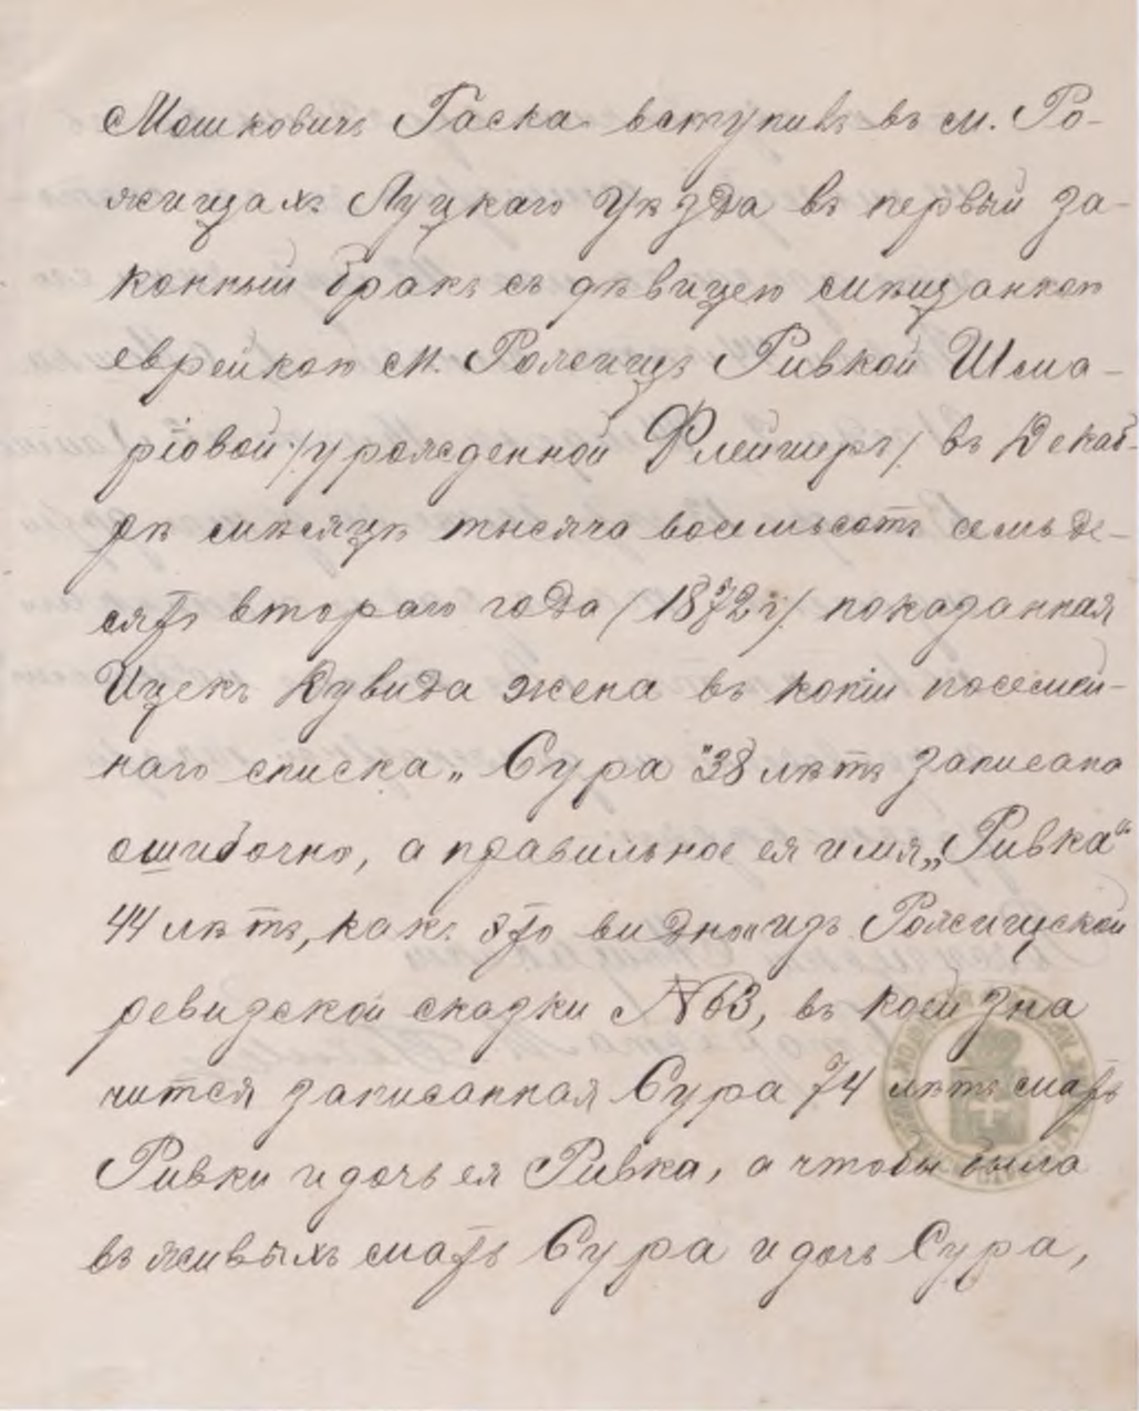 Мошковичъ Гаска вступивъ въ м. Ро-
жищахъ Луцкаго Уѣзда въ первый за-
конный бракъ съ дѣвицею мѣщанкою
еврейкою м. Рожищъ Ривкой Шма-
ріовой /урожденной Флейшеръ/ въ Декаб-
рѣ мѣсяцѣ тысяча восемьсотъ семьде-
сятъ втораго года /1872 г/. показанная
Ицекъ Дувида жена въ копіи посемей-
наго списка „Сура" 38 лѣтъ записана
ошибочно, а правильное ея имя „Ривка"
44 лѣтъ, какъ это видно изъ Рожищской
ревизской сказки №63, въ коей зна
чится записанная Сура 74 лѣтъ мать
Ривки и дочь ея Ривка, а чтобы была
въ живыхъ мать Сура и дочь Сура,